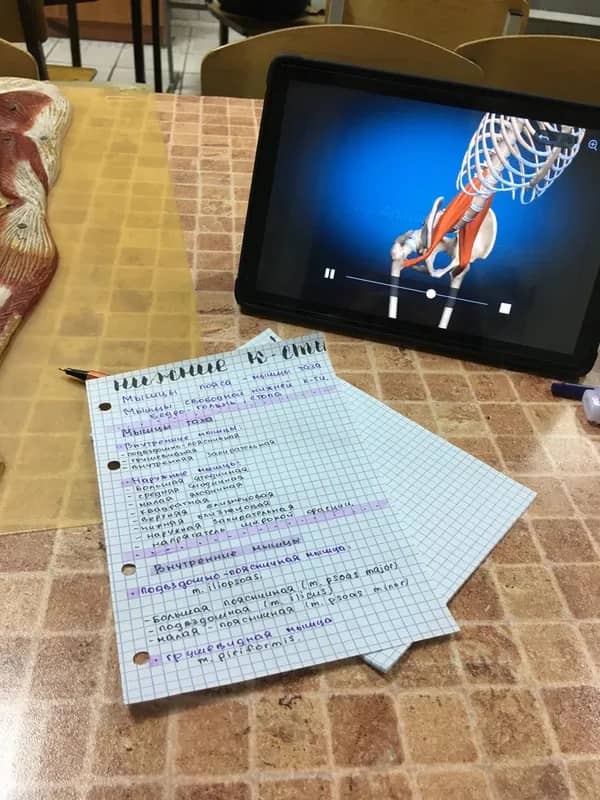 нижние к-сти
Мышцы пояса - мышцы таза
Мышцы свободной нижней к-ти
бедро, голень, стопа
Мышцы таза
• Внутренние мышцы:
- подвздошно-поясничная
- грушевидная
- внутренняя запирательная
• Наружные мышцы:
- большая ягодичная
- средняя ягодичная
- малая ягодичная
- квадратная
- верхняя близнецовая
- нижняя близнецовая
- наружная запирательная
- напрягатель широкой фасции
Внутренние мышцы
• Подвздошно-поясничная мышца.
m. iliopsoas
- Большая поясничная (m. psoas major)
- подвздошная (m. ilicus)
- малая - поясничная (m. psoas minor)
• Грушевидная мышца
m. piriformis